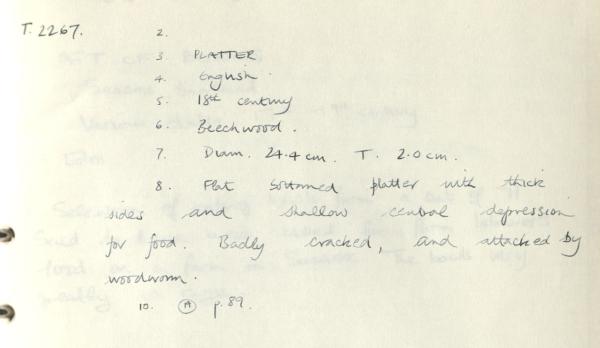 T. 2267.
2.
3. PLATTER
4. English.
5. 18th century
6. Beechwood.
7. Diam. 24.4 cm. T. 2.0 cm.
8. Flat bottomed platter with thick
sides and shallow central depression
for food. Badly cracked, and attacked by
woodworm.
10. A p.89.